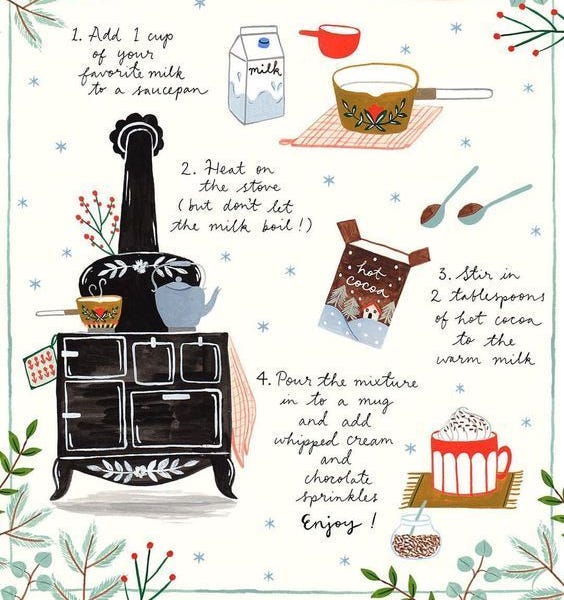 1. Add 1 cup
of your
favorite milk
to a saucepan
milk
2. Heat on
the stove
(but don't let
the milk boil!)
hot
cocoa
3. Stir in
2 tablespoons
of hot cocoa
to the
warm milk
4. Pour the mixture
in to a mug
and add
whipped cream
and
chocolate
sprinkles
Enjoy!